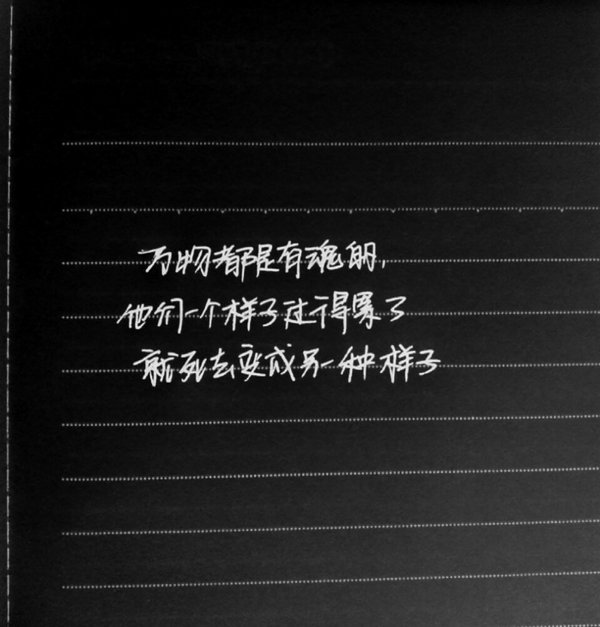 万物都是有魂的,
他们一个样子过得累了
就死去变成另一种样子